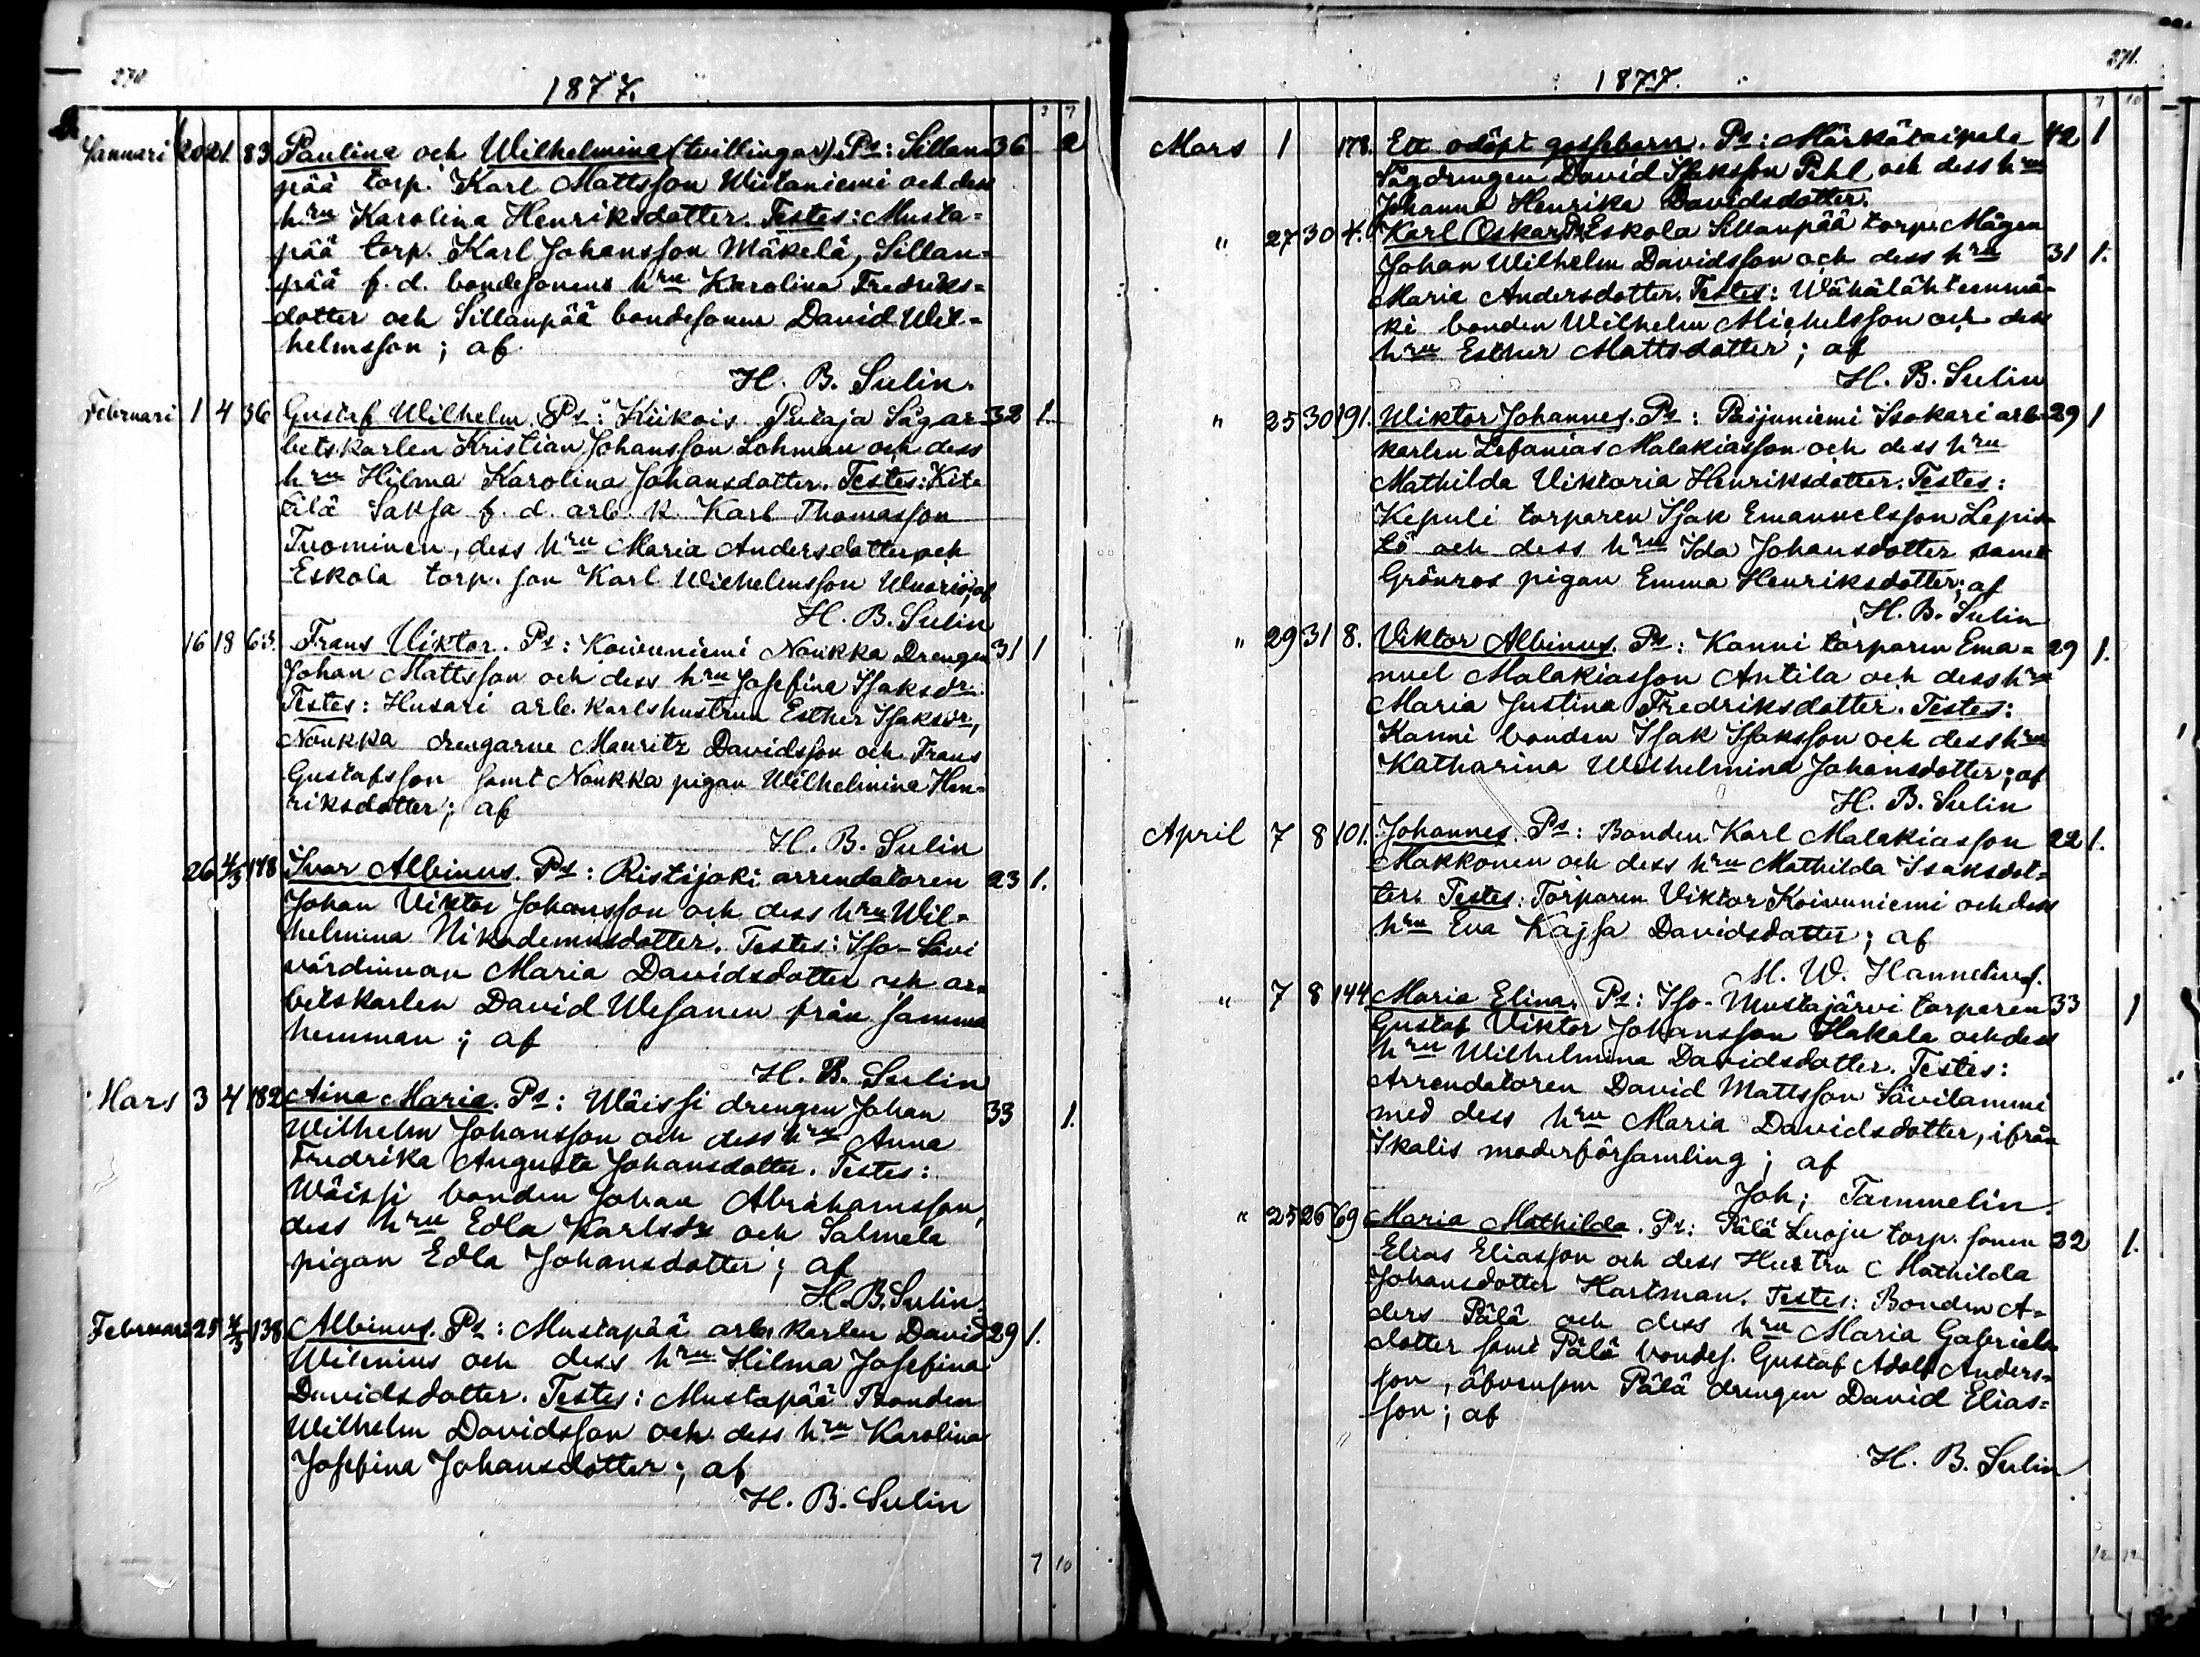 270
1877.
3 7
Januari 20 21. 83. Pauline och Wilhelmine (tvillingar). Ps: Sillan= 36 2
pää torp. Karl Mattsson Wiitaniemi och dess
hru Karolina Henriksdotter. Testes: Musta=
pää torp. Karl Johansson Mäkelä, Sillan=
pää f. d. bondesonens hru Karolina Fredriks=
dotter och Sillanpää bondesonen David Wil=
helmsson; af
H. B. Sulin.
Februari 1 4 36 Gustaf Wilhelm. Ps: Kiikois Putaja Sågar= 32 1.
betskarlen Kristian Johansson Lohman och dess
hru Hilma Karolina Johansdotter. Testes: Kite
lilä Saksa f. d. arb. k. Karl Thomasson
Tuominen, dess hru Maria Andersdotter och
Eskola torp. son Karl Wilhelmsson Wuorio; af
H. B. Sulin
16 18 63. Frans Viktor. Ps: Koivuniemi Noukka Drengen 31 1
Johan Mattsson och dess hru Josefina Isaksdr.
Testes: Husari arb. karlshustrun Esther Isaksdr,
Noukka drengarne Mauritz Davidsson och Frans
Gustafsson samt Noukka pigan Wilhelmina Hen=
riksdotter; af
H. B. Sulin
26 4/3 178 Ivar Albinus. Ps: Ristijoki arrendatoren 23 1.
Johan Viktor Johansson och dess hru Wil=
helmina Nikodemusdotter. Testes: Iso-Sävi
värdinnan Maria Davidsdotter och ar=
betskarlen David Wesanen från samma
hemman; af
H. B. Sulin
Mars 3 4 182 Aina Maria. Ps: Wäissi drengen Johan 33 1.
Wilhelm Johansson och dess hru Anna
Fredrika Augusta Johansdotter. Testes:
Wäissi bonden Johan Abrahamsson,
dess hru Edla Karlsdr och Salmela
pigan Edla Johansdotter; af
H. B. Sulin.
Februari 25 4/3 138 Albinus. Ps: Mustapää arb. karlen David 29 1.
Wilenius och dess hru Hilma Josefina
Davidsdotter. Testes: Mustapää Bonden
Wilhelm Davidsson och dess hru Karolina
Josefina Johansdotter; af
H. B. Sulin
7 10
271.
1877.
7 10
Mars 1 178. Ett odöpt gossebarn. Ps: Märkätaipele 42 1
Sågdrengen David Isaksson Pihl och dess hru
Johanna Henrika Davidsdotter.
" 27 30 4. Karl Oskar. Ps: Eskola Sillanpää torp. Mågen
Johan Wilhelm Davidsson och dess hru 31 1.
Maria Andersdotter. Testes: Wähälähteenmä=
ki bonden Wilhelm Michelsson och dess
hru Esther Mattsdotter; af
H. B. Sulin
" 25 30 191. Wiktor Johannes. Ps: Pasjuniemi Isokari arb= 29 1
karlen Zefanias Malakiasson och dess hru
Mathilda Viktoria Henriksdotter. Testes:
Kepuli torparen Isak Emanuelsson Lepis=
tö och dess hru Ida Johansdotter samt
Grönros pigan Emma Henriksdotter; af
H. B. Sulin
" 29 31 8. Viktor Albinus. Ps: Kanni torparen Ema= 29 1.
nuel Malakiasson Antila och dess hru
Maria Justina Fredriksdotter. Testes:
Kanni bonden Isak Isaksson och dess hru
Katharina Wilhelmina Johansdotter; af
H. B. Sulin
April 7 8 101. Johannes. Ps: Bonden Karl Malakiasson 22 1.
Makkonen och dess hru Mathilda Isaksdot=
ter. Testes: Torparen Viktor Koivuniemi och dess
hru Eva Kajsa Davidsdotter; af
M. W. Hannelius.
" 7 8 144 Maria Elina. Ps: Iso-Mustajärvi torparen 33 1
Gustaf Viktor Johansson Hakala och dess
hru Wilhelmina Davidsdotter. Testes:
Arrendatoren David Mattsson Sävilammi
med dess hru Maria Davidsdotter, ifrån
Ikalis moderförsamling; af
Joh: Tammelin.
" 25 26 69 Maria Mathilda. Ps: Pälä Luoju torp. sonen 32 1.
Elias Eliasson och dess Hustru Mathilda
Johansdotter Hartman. Testes: Bonden A=
ders Pälä och dess hru Maria Gabriels=
dotter samt Pälä bondes. Gustaf Adolf Anders=
son, äfvensom Pälä drengen David Elias=
son; af
H. B. Sulin
12 12